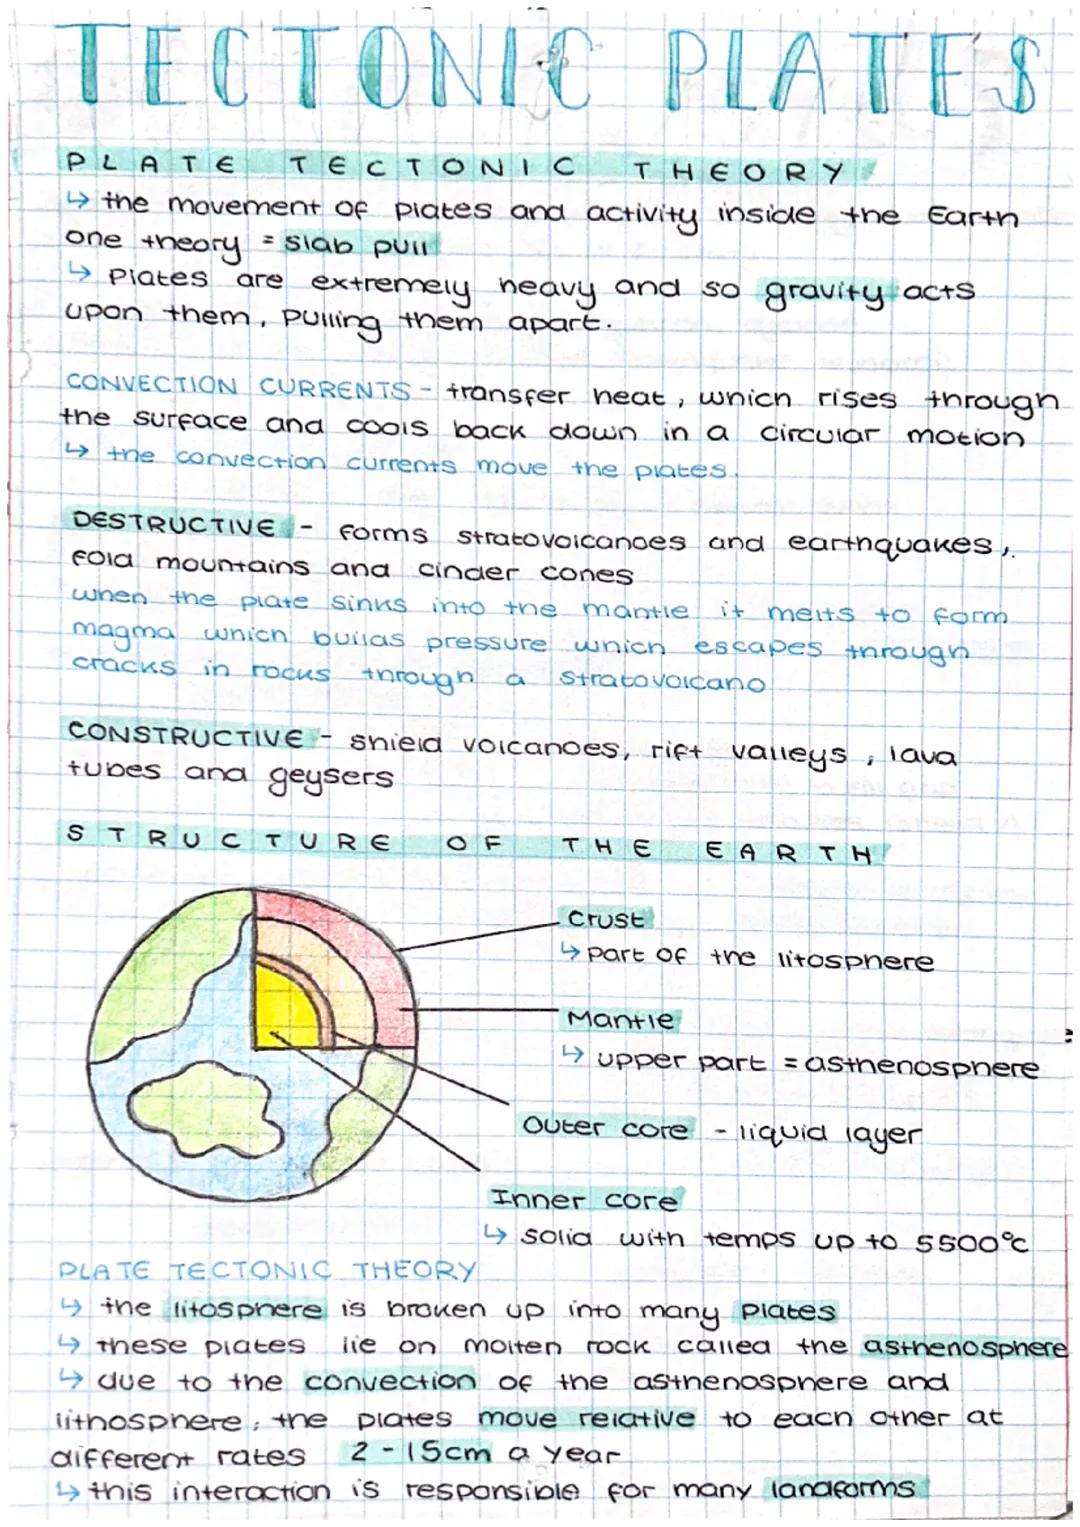 TECTONIC PLATES
PLATE TECTONIC THEORY
↳ the movement of plates and activity inside the Earth
one theory = slab pull
↳ Plates are extremely heavy and so gravity acts
upon them, pulling them apart.
CONVECTION CURRENTS - transfer heat, which rises through
the surface and cools back down in a circular motion
↳ the convection currents move the plates.
DESTRUCTIVE - forms stratovolcanoes and earthquakes,
fold mountains and cinder cones
when the plate sinks into the mantle it melts to form
magma which builds pressure which escapes through
cracks in rocks through a stratovolcano
CONSTRUCTIVE - shield volcanoes, rift valleys, lava
tubes and geysers
STRUCTURE OF THE EARTH
Crust
↳ part of the litosphere
Mantle
↳ upper part = asthenosphere
Outer core - liquid layer
Inner core
↳ solid with temps up to 5500°C
PLATE TECTONIC THEORY
↳ the litosphere is broken up into many plates
↳ these plates lie on molten rock called the asthenosphere
↳ due to the convection of the asthenosphere and
lithosphere, the plates move relative to each other at
different rates 2-15cm a year
↳ this interaction is responsible for many landforms